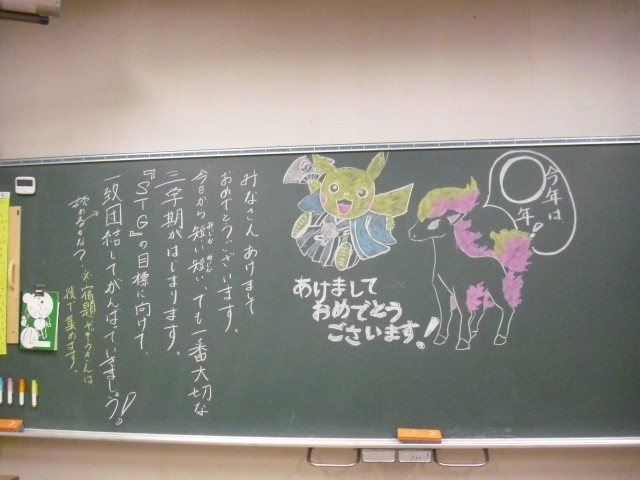 みなさん あけまして
おめでとうございます。
今日から短い短い、でも一番大切な
三学期がはじまります。
『STG』の目標に向けて、
一致団結してがんばっていきましょう!
読めるかな?
※宿題
後で集めます。
あけまして
おめでとう
ございます!
今年は
〇年!